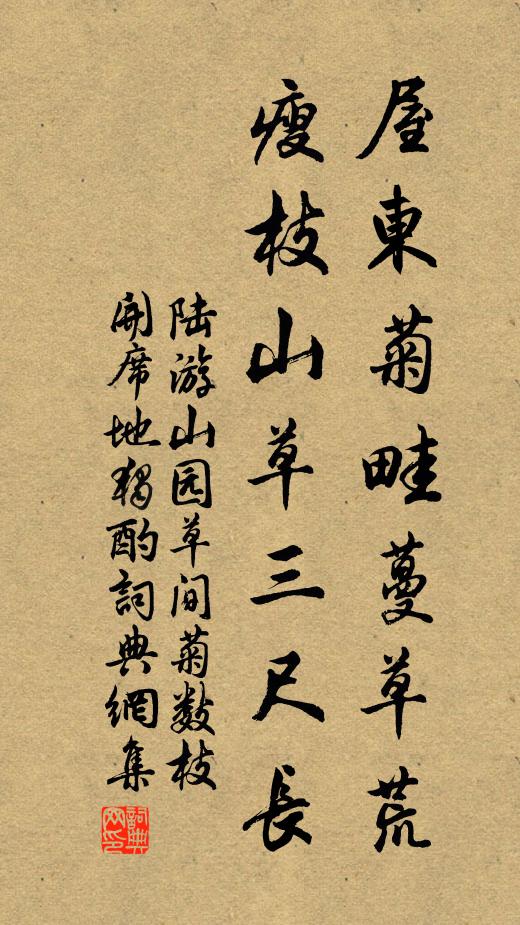 屋東菊畦蔓草荒
瘦枝山草三尺長
陆游山园草间菊数枝
開席地獨酌詞典網集
詞典網印